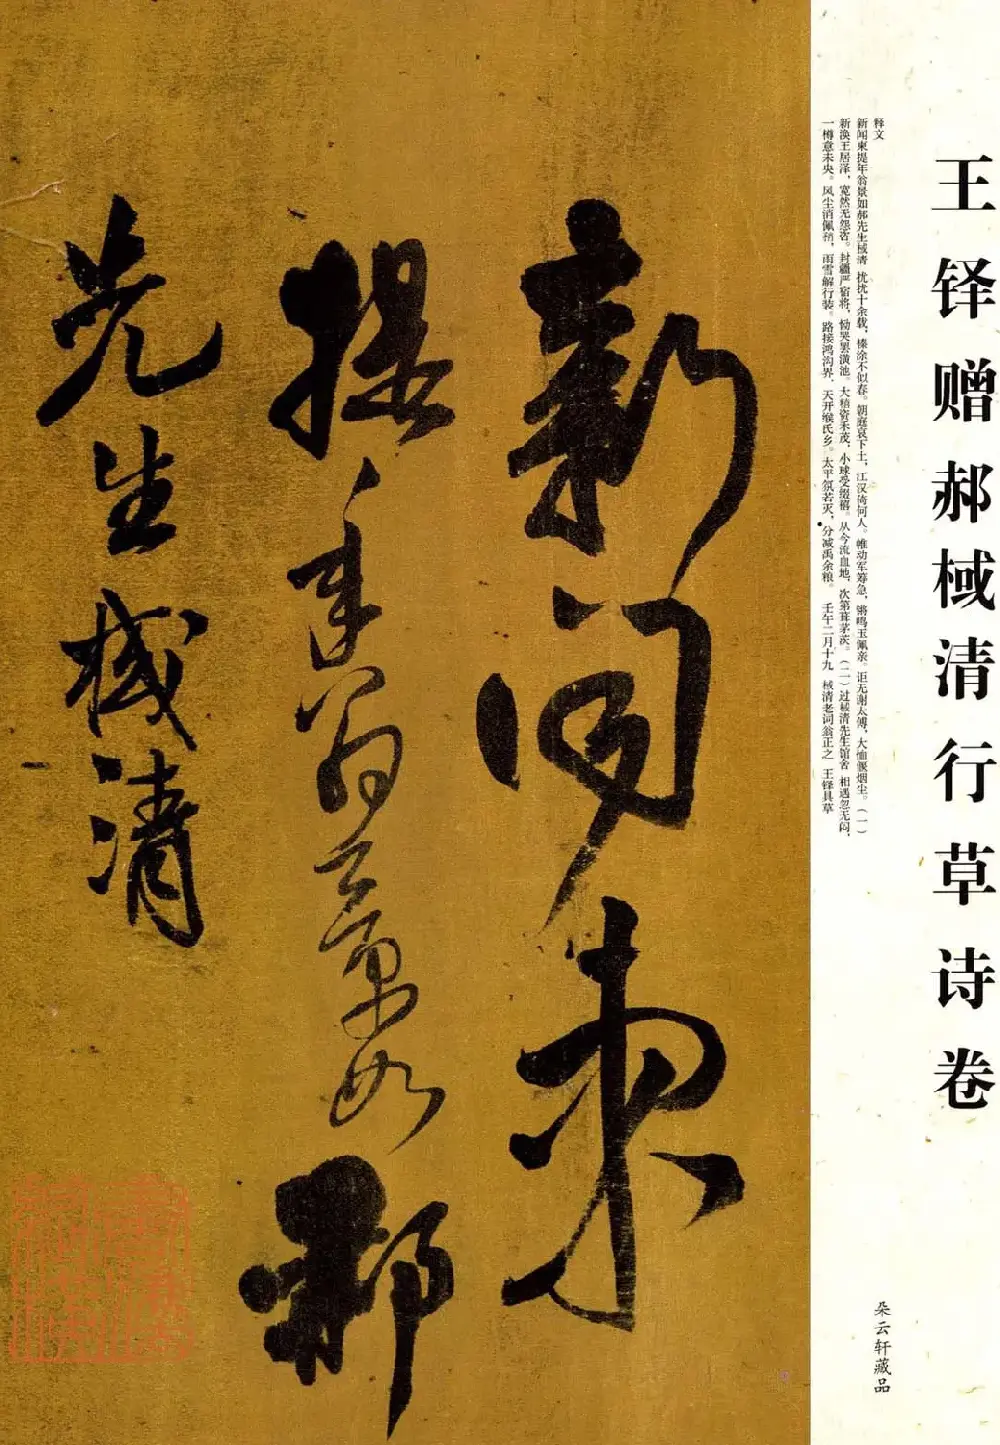 王铎赠郝棫清行草诗卷
释文
新闻柬提年翁景如郝先生棫清 扰扰十余载，榛涂不似春。朝庭哀下土，江汉 何人。帷幼军筹急，锵鸣玉佩亲。讵无谢太傅，大恤偃烟尘。（一）
新涣王居泽，宽然无怨咨。封疆严宿将，恸哭罢潢池。大稽资禾茂，小球受缀 。从今流血地，次第葺茅茨。（二）过棫清先生馆舍 相遇忽无闷，
一樽意未央。风尘消佩 ，雨雪解行装。路接鸿沟界，天开缑氏乡。太平氛若灭，分减禹余粮。 壬午二月十九 棫清老词翁正之 王铎具草
朵云轩藏品
新闻柬
提年翁景如郝
先生棫清